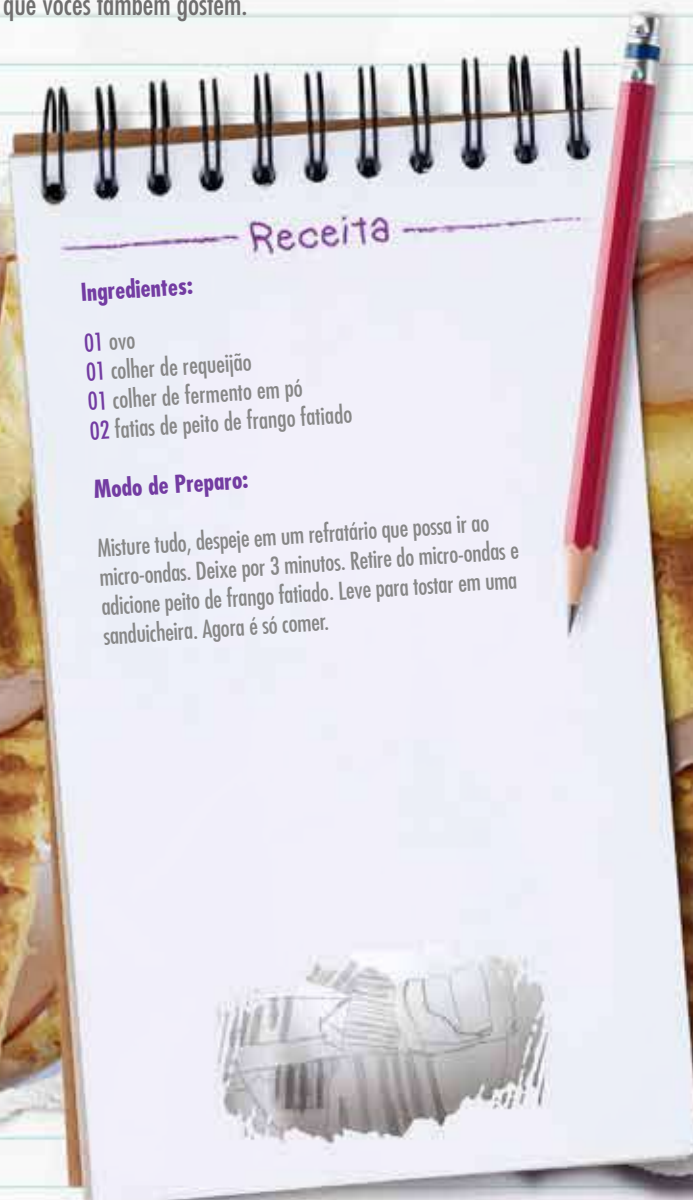 que vocês também gostem.
Receita
Ingredientes:
01 ovo
01 colher de requeijão
01 colher de fermento em pó
02 fatias de peito de frango fatiado
Modo de Preparo:
Misture tudo, despeje em um refratário que possa ir ao
micro-ondas. Deixe por 3 minutos. Retire do micro-ondas e
adicione peito de frango fatiado. Leve para tostar em uma
sanduicheira. Agora é só comer.